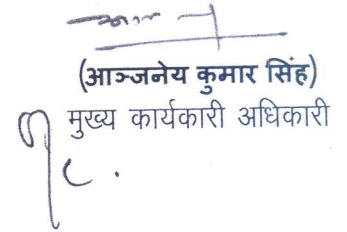 (आञ्जनेय कुमार सिंह)
मुख्य कार्यकारी अधिकारी